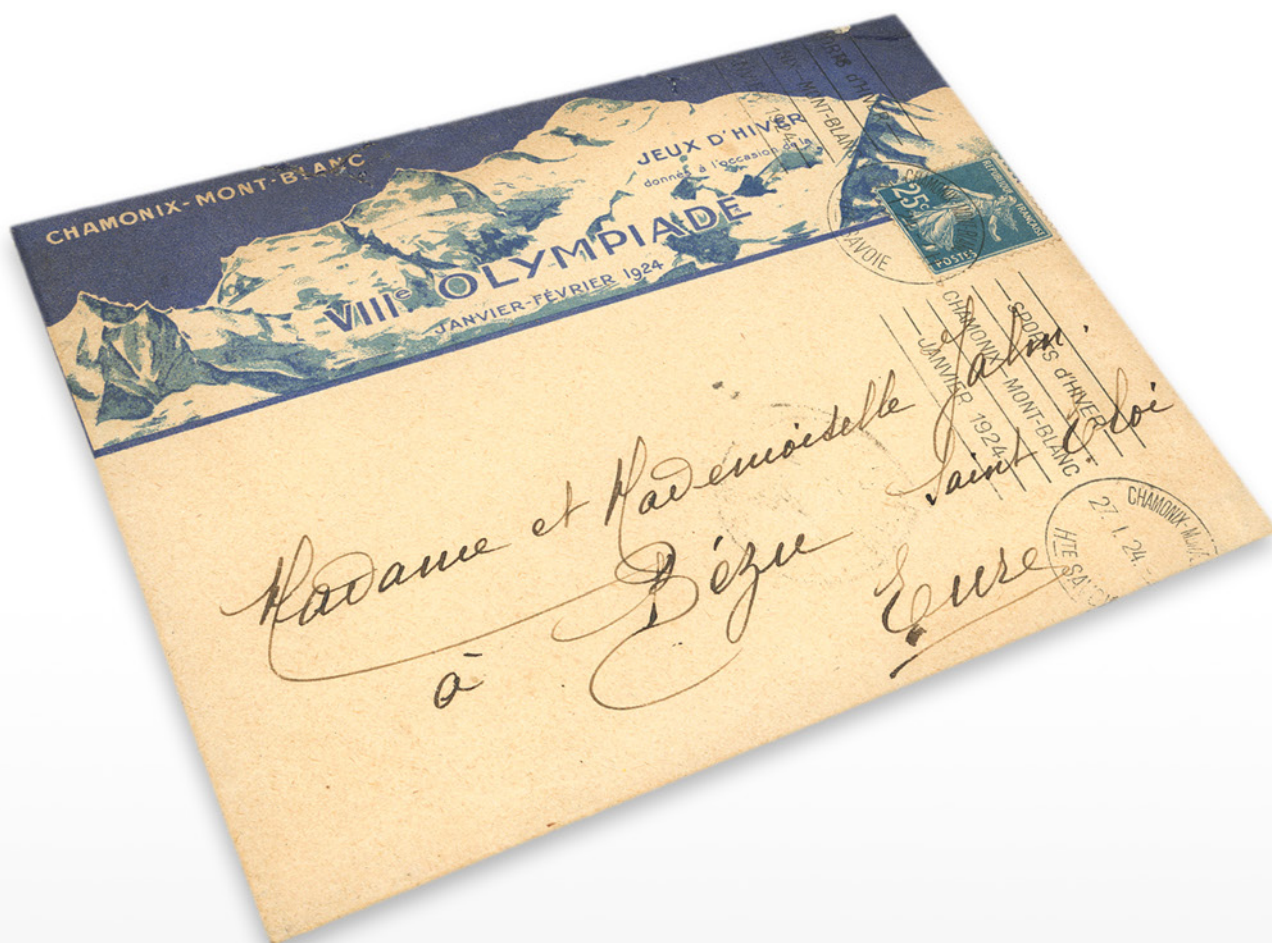 CHAMONIX-MONT-BLANC
JEUX D'HIVER
donnés à l'occasion de la
VIIIe OLYMPIADE
JANVIER-FÉVRIER 1924
SPORTS d'HIVER
CHAMONIX-MONT-BLANC
JANVIER 1924
SAVOIE
25c
REPUBLIQUE FRANÇAISE
POSTES
SPORTS d'HIVER
CHAMONIX MONT-BLANC
JANVIER 1924
CHAMONIX-
27 1. 24.
HTE SAVOIE
Madame et Mademoiselle
à Bézu Saint Eloi
Eure